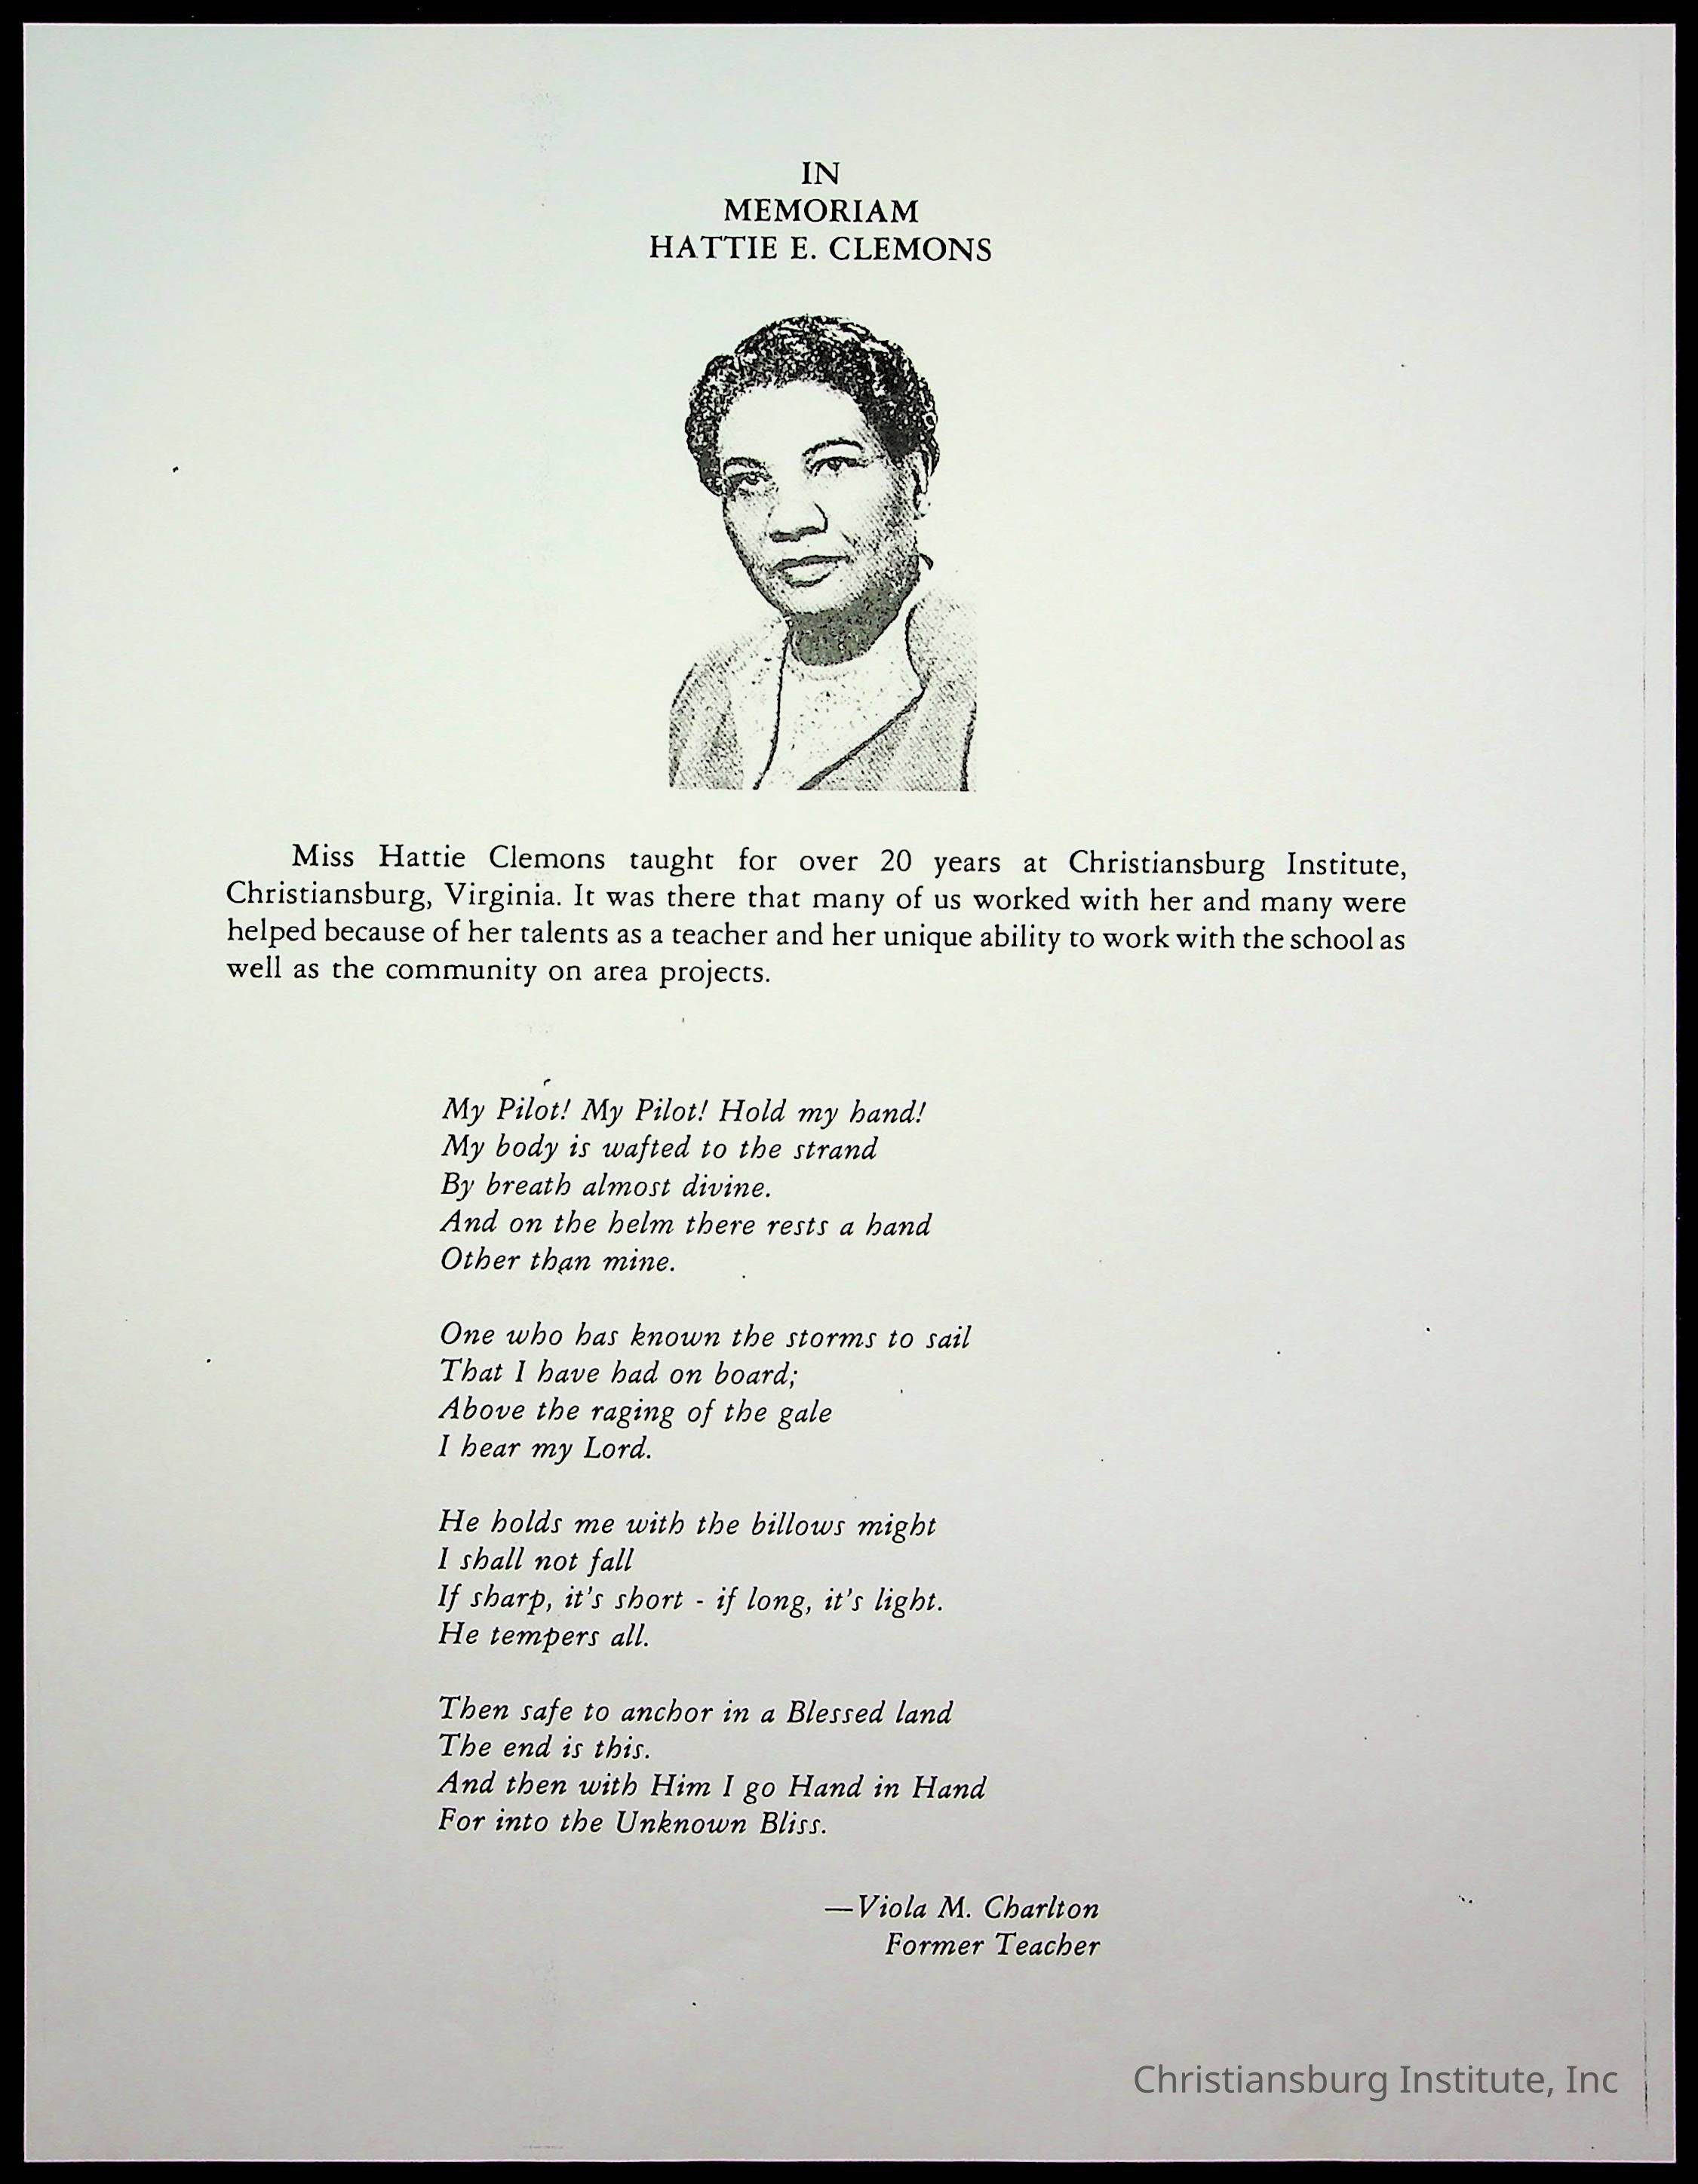 IN
MEMORIAM
HATTIE E. CLEMONS
Miss Hattie Clemons taught for over 20 years at Christiansburg Institute,
Christiansburg, Virginia. It was there that many of us worked with her and many were
helped because of her talents as a teacher and her unique ability to work with the school as
well as the community on area projects.
My Pilot! My Pilot! Hold my hand!
My body is wafted to the strand
By breath almost divine.
And on the helm there rests a hand
Other than mine.
One who has known the storms to sail
That I have had on board;
Above the raging of the gale
I hear my Lord.
He holds me with the billows might
I shall not fall
If sharp, it's short - if long, it's light.
He tempers all.
Then safe to anchor in a Blessed land
The end is this.
And then with Him I go Hand in Hand
For into the Unknown Bliss.
—Viola M. Charlton
Former Teacher
Christiansburg Institute, Inc